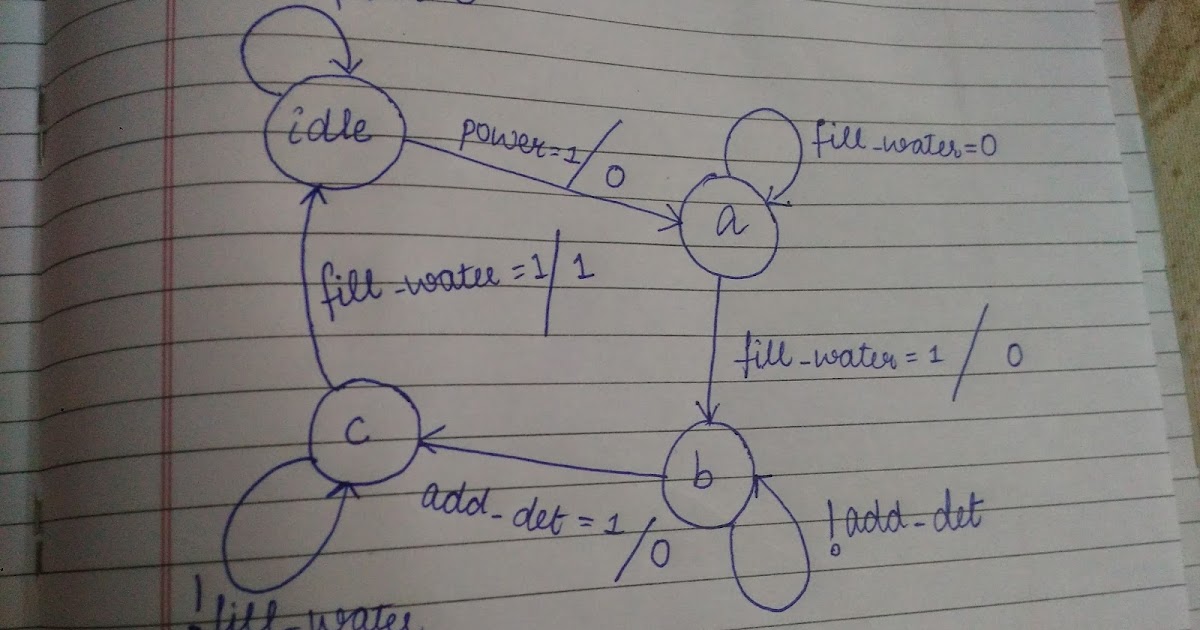 idle
power=1/0
fill_water=0
a
fill_water=1/1
fill_water=1/0
c
b
add_det=1/0
!add_det
!fill_water